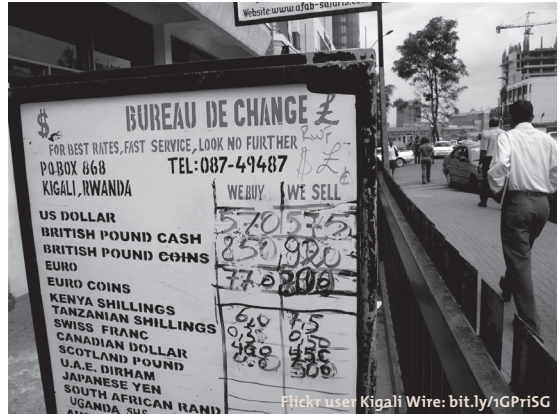 Website:www.afab-safaris.com
$ BUREAU DE CHANGE £
FOR BEST RATES, FAST SERVICE, LOOK NO FURTHER
RWF
$ £
¢
PO BOX 868 TEL:087-49487
KIGALI, RWANDA
WE BUY WE SELL
US DOLLAR 570 575
BRITISH POUND CASH 850 920
BRITISH POUND COINS
EURO 770 800
EURO COINS
KENYA SHILLINGS 6.0 7.5
TANZANIAN SHILLINGS
SWISS FRANC
CANADIAN DOLLAR
SCOTLAND POUND
U.A.E. DIRHAM
JAPANESE YEN
SOUTH AFRICAN RAND
UGANDA SHS
Flickr user Kigali Wire: bit.ly/1GPriSG